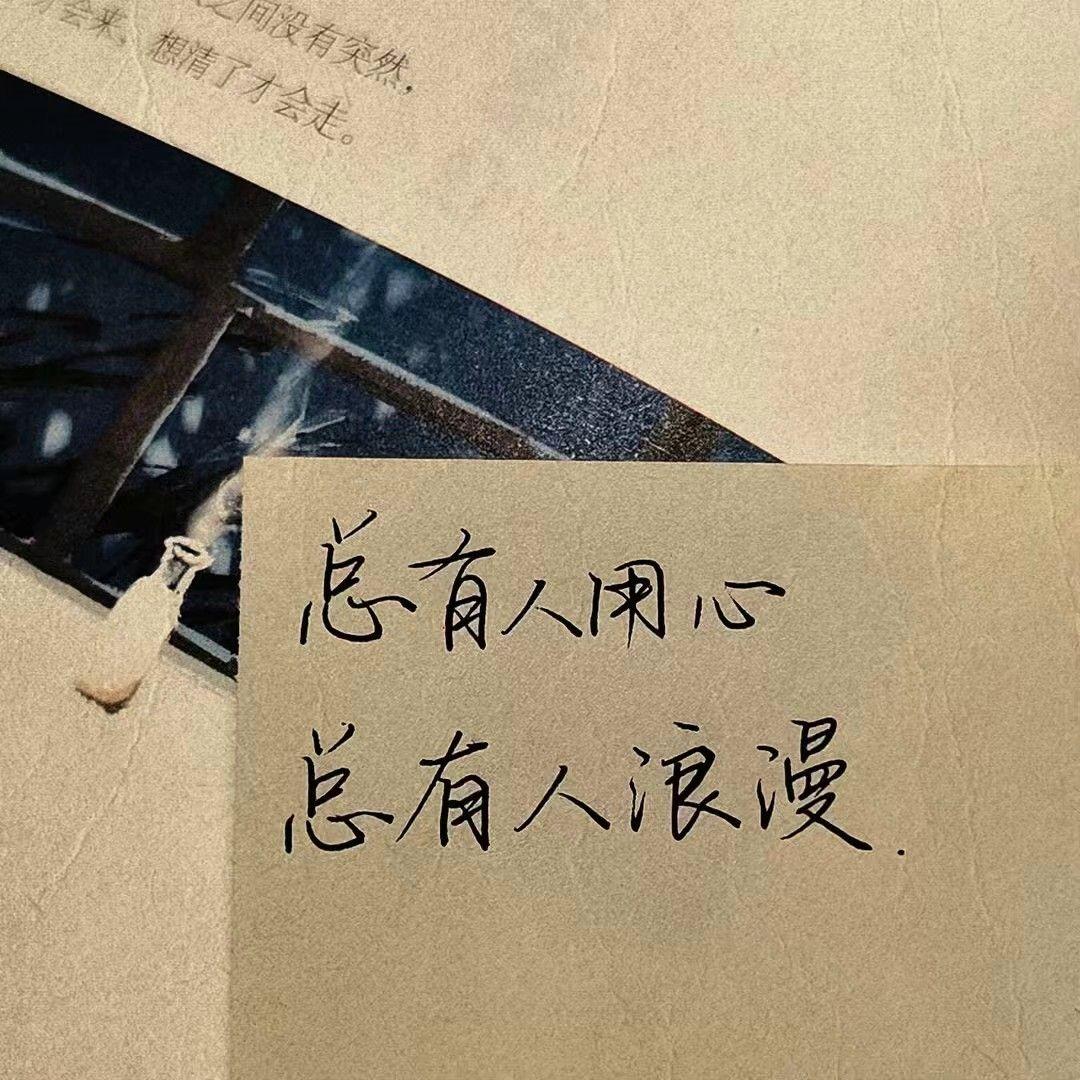 之间没有突然，
才会来，想清了才会走。
总有人用心
总有人浪漫.